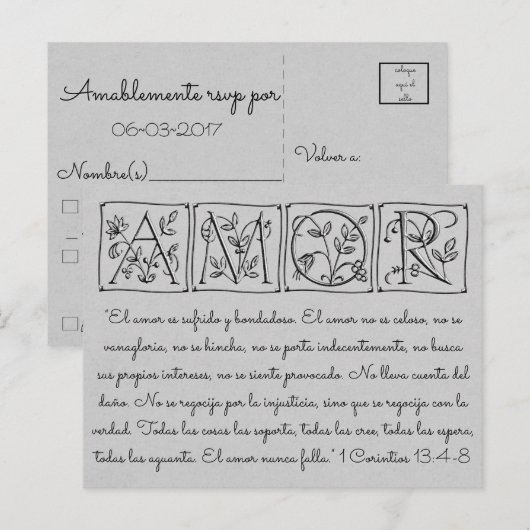 Amablemente rsvp por
06~03~2017
Nombre(s)
coloque
aquí el
sello
Volver a:
AMOR
"El amor es sufrido y bondadoso. El amor no es celoso, no se
vanagloria, no se hincha, no se porta indecentemente, no busca
sus propios intereses, no se siente provocado. No lleva cuenta del
daño. No se regocija por la injusticia, sino que se regocija con la
verdad. Todas las cosas las soporta, todas las cree, todas las espera,
todas las aguanta. El amor nunca falla." 1 Corintios 13:4-8